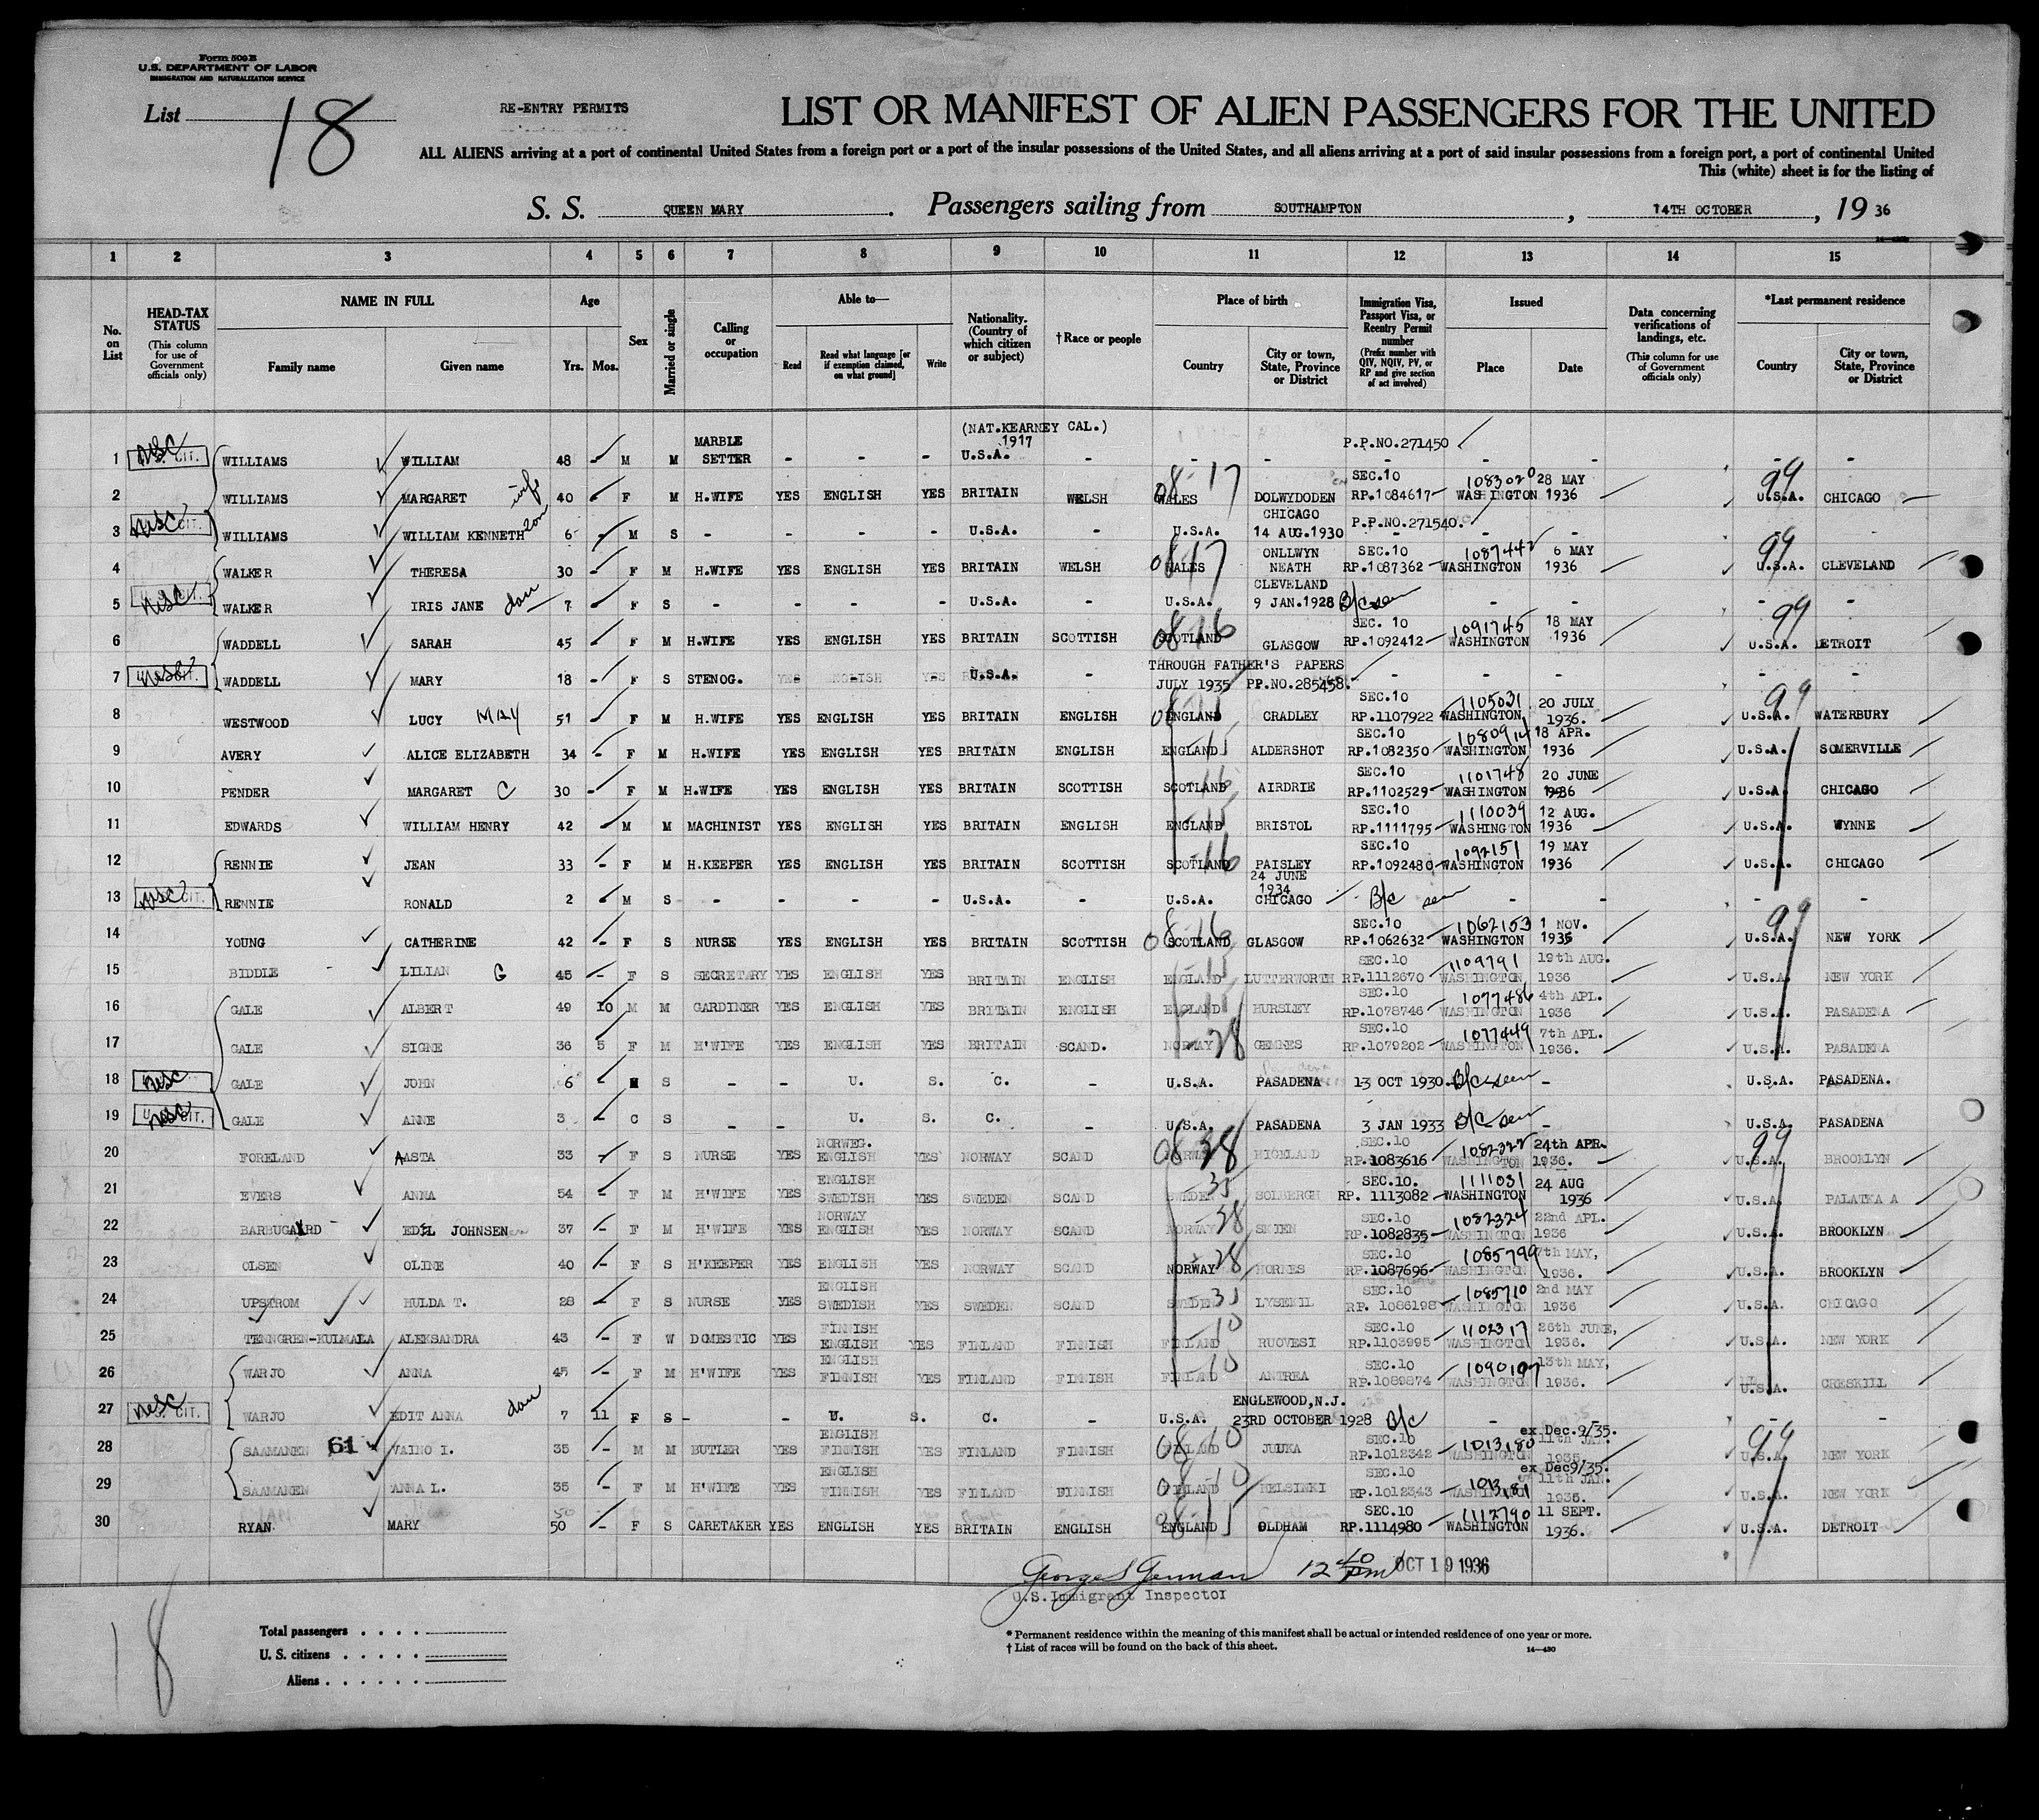 Form 500 B
U.S. DEPARTMENT OF LABOR
IMMIGRATION AND NATURALIZATION SERVICE
List 18
RE-ENTRY PERMITS
LIST OR MANIFEST OF ALIEN PASSENGERS FOR THE UNITED
ALL ALIENS arriving at a port of continental United States from a foreign port or a port of the insular possessions of the United States, and all aliens arriving at a port of said insular possessions from a foreign port, a port of continental United
This (white) sheet is for the listing of
S. S. QUEEN MARY. Passengers sailing from SOUTHAMPTON, 14TH OCTOBER, 19 36
1 2 3 4 5 6 7 8 9 10 11 12 13 14 15
No. on List
HEAD-TAX STATUS (This column for use of Government officials only)
NAME IN FULL Family name Given name
Age Yrs. Mos.
Sex
Married or single
Calling or occupation
Able to— Read Read what language [or if exemption claimed, on what ground] Write
Nationality. (Country of which citizen or subject)
†Race or people
Place of birth Country City or town, State, Province or District
Immigration Visa, Passport Visa, or Reentry Permit number (Prefix number with QIV, NQIV, PV, or RP and give section of act involved)
Issued Place Date
Data concerning verifications of landings, etc. (This column for use of Government officials only)
*Last permanent residence Country City or town, State, Province or District
1 USC WILLIAMS WILLIAM 48 - M M MARBLE SETTER - - - (NAT.KEARNEY CAL.) 1917 U.S.A. - - - P.P.NO.271450 - - - -
2 WILLIAMS MARGARET wife 40 - F M H.WIFE YES ENGLISH YES BRITAIN WELSH 08-17 WALES DOLWYDODEN SEC.10 RP.1084617 1083020 WASHINGTON 28 MAY 1936 99 U.S.A. CHICAGO
3 USC WILLIAMS WILLIAM KENNETH son 6 - M S - - - - U.S.A. - U.S.A. CHICAGO 14 AUG.1930 P.P.NO.271540. - - - -
4 WALKER THERESA 30 - F M H.WIFE YES ENGLISH YES BRITAIN WELSH 08-17 WALES ONLLWYN NEATH SEC.10 RP.1087362 1087442 WASHINGTON 6 MAY 1936 99 U.S.A. CLEVELAND
5 USC WALKER IRIS JANE dau 7 - F S - - - - U.S.A. - U.S.A. CLEVELAND 9 JAN.1928 B/c seen - - - -
6 WADDELL SARAH 45 - F M H.WIFE YES ENGLISH YES BRITAIN SCOTTISH 08-16 SCOTLAND GLASGOW SEC. 10 RP.1092412 1091745 WASHINGTON 18 MAY 1936 99 U.S.A. DETROIT
7 USC WADDELL MARY 18 - F S STENOG. YES ENGLISH YES U.S.A. - THROUGH FATHER'S PAPERS JULY 1935 PP.NO.285458. - - - -
8 WESTWOOD LUCY MAY 51 - F M H.WIFE YES ENGLISH YES BRITAIN ENGLISH ENGLAND CRADLEY SEC.10 RP.1107922 1105031 WASHINGTON 20 JULY 1936. 99 U.S.A. WATERBURY
9 AVERY ALICE ELIZABETH 34 - F M H.WIFE YES ENGLISH YES BRITAIN ENGLISH ENGLAND 15 ALDERSHOT SEC.10 RP.1082350 1080914 WASHINGTON 18 APR. 1936 U.S.A. SOMERVILLE
10 PENDER MARGARET C 30 - F M H.WIFE YES ENGLISH YES BRITAIN SCOTTISH SCOTLAND 16 AIRDRIE SEC.10 RP.1102529 1101748 WASHINGTON 20 JUNE 1936 U.S.A. CHICAGO
11 EDWARDS WILLIAM HENRY 42 - M M MACHINIST YES ENGLISH YES BRITAIN ENGLISH ENGLAND 15 BRISTOL SEC.10 RP.1111795 1110039 WASHINGTON 12 AUG. 1936 U.S.A. WYNNE
12 RENNIE JEAN 33 - F M H.KEEPER YES ENGLISH YES BRITAIN SCOTTISH SCOTLAND 16 PAISLEY SEC.10 RP.1092480 1092151 WASHINGTON 19 MAY 1936 U.S.A. CHICAGO
13 USC RENNIE RONALD 2 - M S - - - - U.S.A. - U.S.A. 24 JUNE 1934 CHICAGO B/c seen - - - -
14 YOUNG CATHERINE 42 - F S NURSE YES ENGLISH YES BRITAIN SCOTTISH 08-16 SCOTLAND GLASGOW SEC.10 RP.1062632 1062153 WASHINGTON 1 NOV. 1935 99 U.S.A. NEW YORK
15 BIDDLE LILIAN G 45 - F S SECRETARY YES ENGLISH YES BRITAIN ENGLISH ENGLAND 15 LUTTERWORTH SEC.10 RP.1112670 1109791 WASHINGTON 19th AUG. 1936 U.S.A. NEW YORK
16 GALE ALBERT 49 10 M M GARDINER YES ENGLISH YES BRITAIN ENGLISH ENGLAND 15 HURSLEY SEC.10 RP.1078746 1077486 WASHINGTON 4th APL. 1936 U.S.A. PASADENA
17 GALE SIGNE 36 5 F M H'WIFE YES ENGLISH YES BRITAIN SCAND. NORWAY 28 GEMNES SEC.10 RP.1079202 1077449 WASHINGTON 7th APL. 1936. U.S.A. PASADENA
18 USC GALE JOHN 6 - M S - - U. S. C. - U.S.A. PASADENA 13 OCT 1930 B/c seen - U.S.A. PASADENA.
19 USC GALE ANNE 3 - C S - - U. S. C. - U.S.A. PASADENA 3 JAN 1933 B/C seen - U.S.A. PASADENA
20 FORELAND AASTA 33 - F S NURSE YES NORWEG. ENGLISH YES NORWAY SCAND 08 28 NORWAY HIGELAND SEC.10 RP.1083616 1082322 WASHINGTON 24th APR. 1936. 99 U.S.A. BROOKLYN
21 EVERS ANNA 54 - F M H'WIFE YES ENGLISH SWEDISH YES SWEDEN SCAND SWEDEN 35 SOLBERGH SEC.10. RP. 1113082 1111031 WASHINGTON 24 AUG 1936 U.S.A. PALATKA A
22 BARBUGAARD EDEL JOHNSEN 37 - F M H'WIFE YES NORWAY ENGLISH YES NORWAY SCAND NORWAY 28 SKIEN SEC.10 RP.1082835 1082324 WASHINGTON 22nd APL. 1936 U.S.A. BROOKLYN
23 OLSEN OLINE 40 - F S H'KEEPER YES ENGLISH YES NORWAY SCAND NORWAY 28 HORNES SEC.10 RP.1087696 1085799 WASHINGTON 7th MAY, 1936. U.S.A. BROOKLYN
24 UPSTROM HULDA T. 28 - F S NURSE YES ENGLISH SWEDISH YES SWEDEN SCAND SWEDEN LYSEKIL RP. 1086198 1085710 WASHINGTON 2nd MAY 1936 U.S.A. CHICAGO
25 TENNGREN-KULMALA ALEKSANDRA 43 - F W DOMESTIC YES FINNISH ENGLISH YES FINLAND FINNISH FINLAND 10 RUOVESI SEC.10 RP.1103995 1102317 WASHINGTON 26th JUNE, 1936. U.S.A. NEW YORK
26 WARJO ANNA 45 - F M H'WIFE YES ENGLISH FINNISH YES FINLAND FINNISH FINLAND 10 ANTREA SEC.10 RP.1089874 1090197 WASHINGTON 13th MAY, 1936. U.S.A. CRESKILL
27 USC WARJO EDIT ANNA dau 7 11 F S - - U. S. C. - U.S.A. ENGLEWOOD,N.J. 23RD OCTOBER 1928 B/c - - - -
28 SAAMANEN 61 VAINO I. 35 - M M BUTLER YES ENGLISH FINNISH YES FINLAND FINNISH 08 10 FINLAND JUUKA SEC.10 RP.1012342 1013180 WASHINGTON ex Dec.9/35. 11th JAN. 1935. 99 U.S.A. NEW YORK
29 SAAMANEN ANNA L. 35 - F M H'WIFE YES ENGLISH FINNISH YES FINLAND FINNISH 08-10 FINLAND HELSINKI SEC.10 RP.1012343 1013181 WASHINGTON ex Dec9/35. 11th JAN. 1935. U.S.A. NEW YORK
30 RYAN MARY 50 - F S CARETAKER YES ENGLISH YES BRITAIN ENGLISH 08-15 ENGLAND OLDHAM SEC.10 RP.1114980 1112790 WASHINGTON 11 SEPT. 1936. U.S.A. DETROIT
George S German 12 40 pm OCT 19 1936
U.S.Immigrant Inspector
18
Total passengers
U. S. citizens
Aliens
* Permanent residence within the meaning of this manifest shall be actual or intended residence of one year or more.
† List of races will be found on the back of this sheet.
14—430